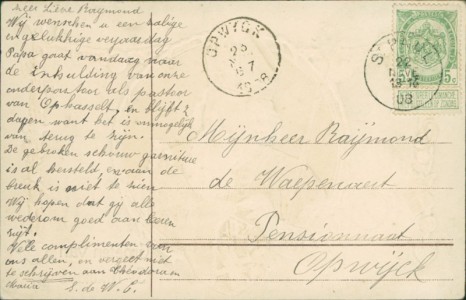 Zeer Lieve Raymond
Wij wenschen u een zalige
en gelukkige verjaardag
Papa gaat vandaag naar
de inhulding van onze
onderpastor als pastoor
van Ophasselt, en blijft 2
dagen want het is onmogelijk
van terug te zijn.
De gebroken schouw garniture
is al hersteld, en aan de
breuk is niet te zien
Wij hopen dat gij alle
wederom goed aan leeren
zijt.
Vele complimenten van
ons allen, en vergeet niet
te schrijven aan Theodora en
S. de W. C.
OPWYCK
23
07
22
NOVE
08
5c
Mijnheer Raÿmond
de Waepenaert
Pensionnaat
Opwÿck